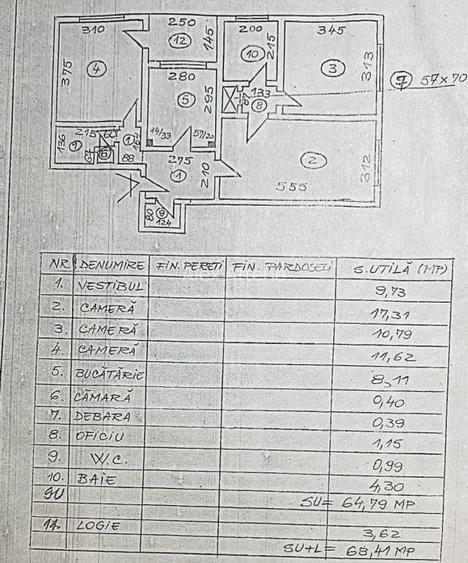 310
250
200
345
12
145
10
215
3
313
375
4
280
5
295
133
8
7 57x70
215
60
136
9
6
1
88
14/33
57/20
275
1
210
2
312
555
80
9
124
NR. DENUMIRE FIN. PERETI FIN. PARDOSELI S. UTILĂ (MP)
1. VESTIBUL 9,73
2. CAMERĂ 17,31
3. CAMERĂ 10,79
4. CAMERĂ 11,62
5. BUCĂTĂRIE 8,11
6. CĂMARĂ 0,40
7. DEBARA 0,39
8. OFICIU 1,15
9. W.C. 0,99
10. BAIE 4,30
SU SU= 64,79 MP
11. LOGIE 3,62
SU+L= 68,41 MP